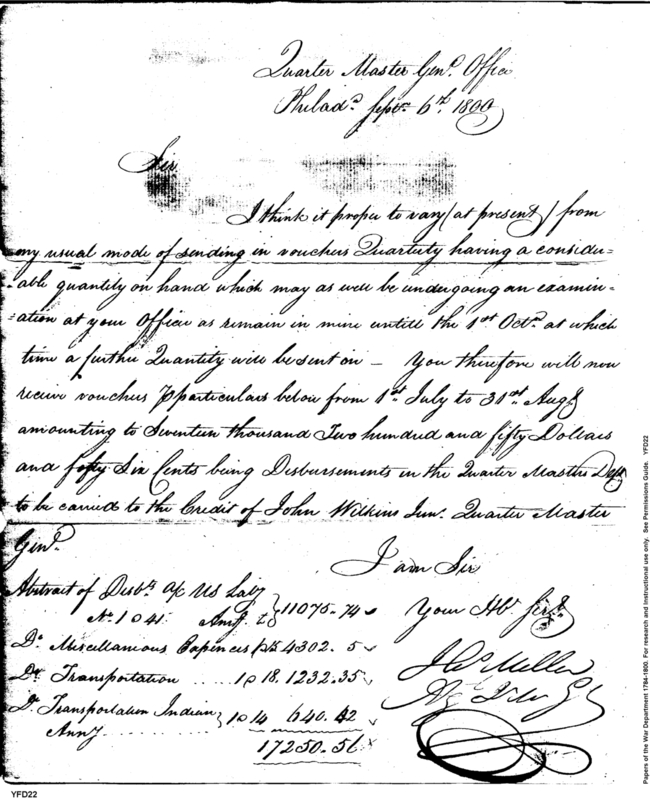 Quarter Master Genl. Office
Philada. Septr. 6th. 1800
Sir
I think it proper to vary (at present) from
my usual mode of sending in vouchers Quarterly having a consider=
=able quantity on hand which may as well be undergoing an examin=
=ation at your Office as remain in mine untill the 1st Octr. at which
time a further Quantity will be sent on – You therefore will now
receive vouchers particulars below from 1st. July to 31st. Augt.
amounting to Seventeen thousand Two hundred and fifty Dollars
and fifty Six Cents being Disbursements in the Quarter Masters Dept.
to be carried to the Credit of John Wilkins Junr. Quarter Master
Genl.
I am Sir
Your Hbl. Sert.
Abstract of Disbts. 11075.74
No. 1 @ 41
Do. Miscellaneous Expences 4302.5
Do. Transportation .... 1 @ 18. 1232.35
Do. Transportation Indian 1 @ 14 640.42
Anny ..........
17250.56
YFD22
Papers of the War Department 1784-1800. For research and instructional use only. See Permissions Guide. YFD22